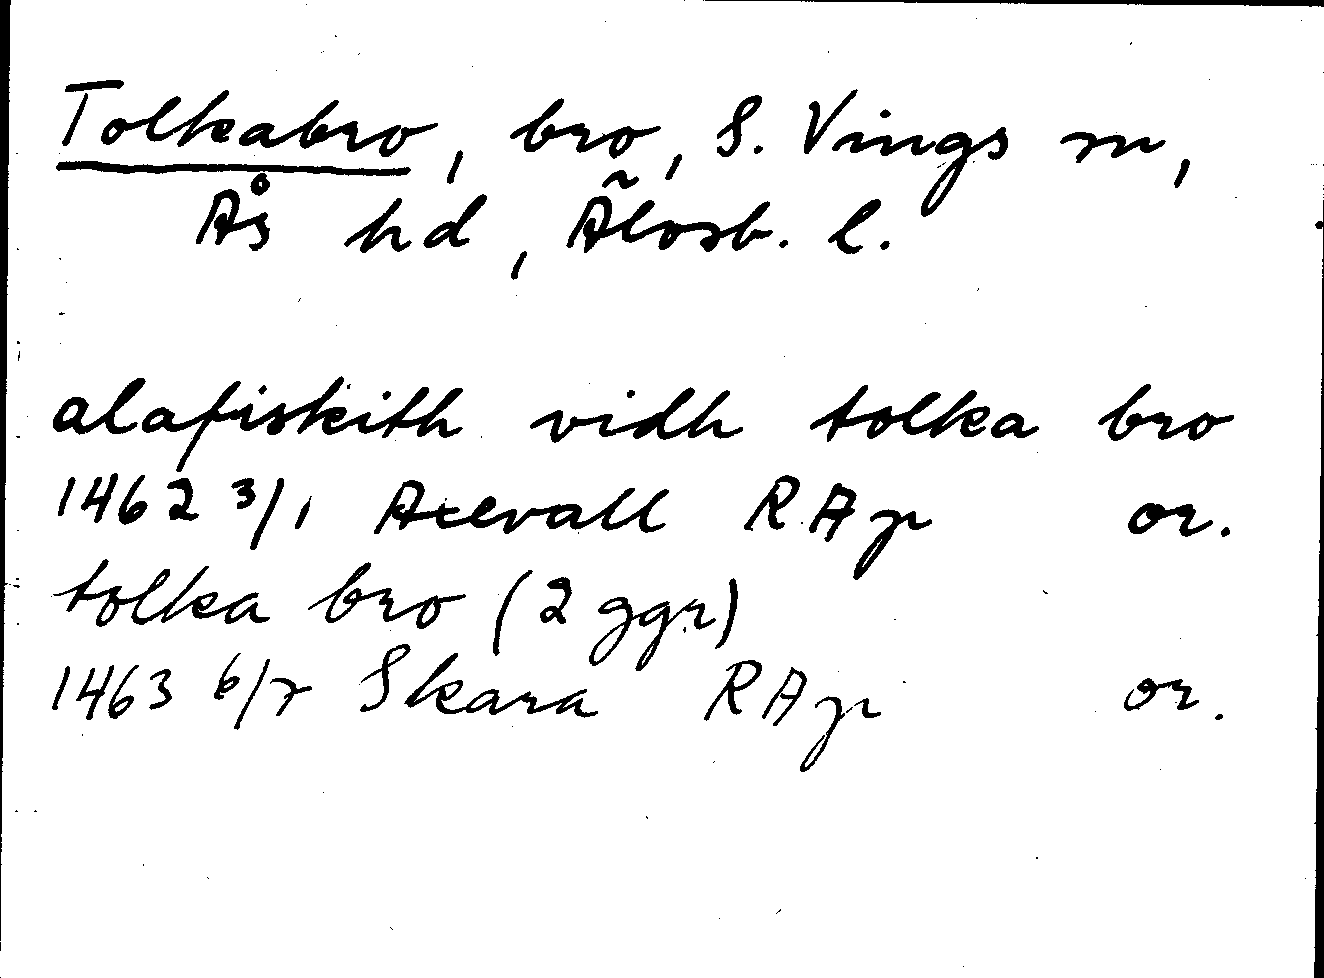 Tolkabro, bro, S. Vings sn,
Ås hd, Älvsb. l.
alafiskith vidh tolka bro
1462 3/1 Axevall RAp or.
tolka bro (2 ggr)
1463 6/7 Skara RAp or.